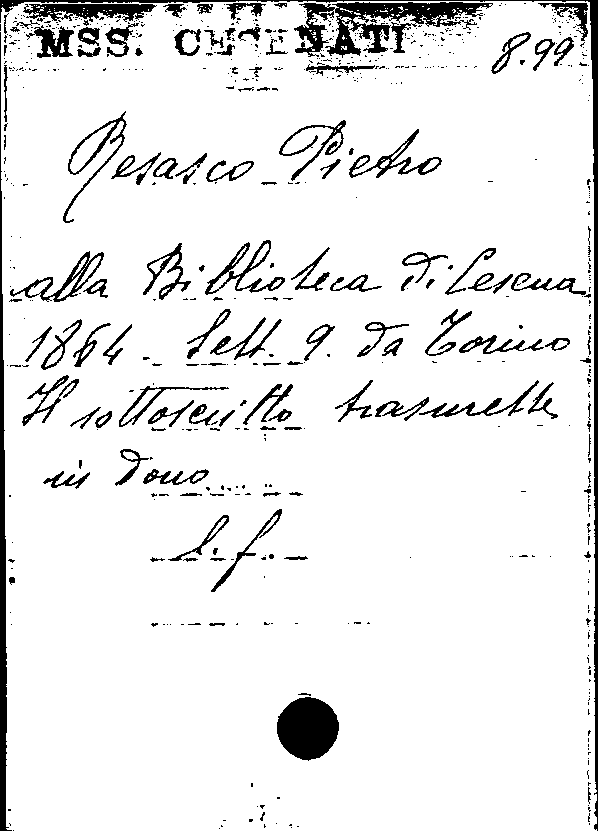 MSS. CESENATI 8.99
Resasco Pietro
alla Biblioteca di Cesena
1864. Sett. 9. da Torino
Il sottoscritto trasmette
in dono....
L. f.